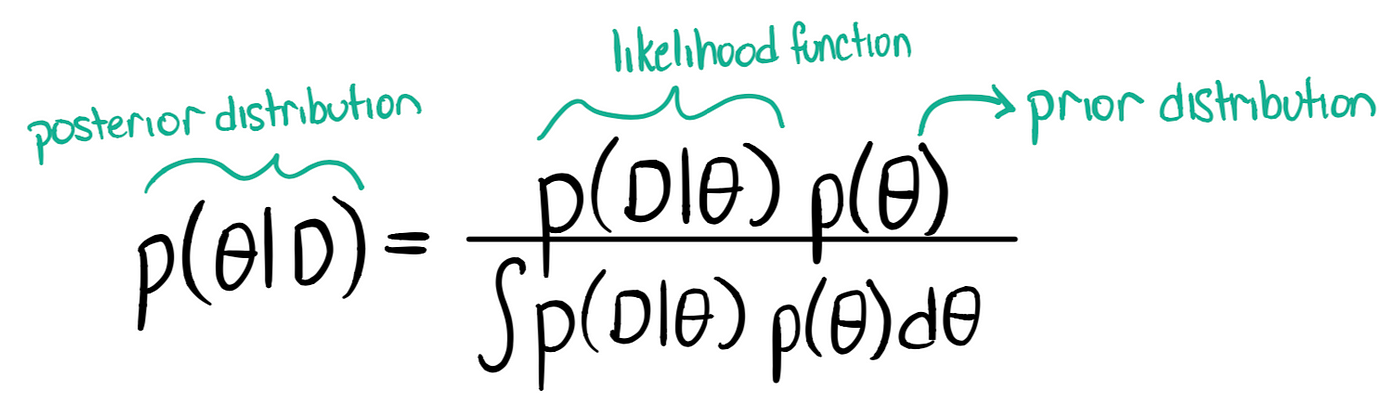 likelihood function
posterior distribution
prior distribution
p(θ|D) = p(D|θ) p(θ)
∫p(D|θ) p(θ)dθ